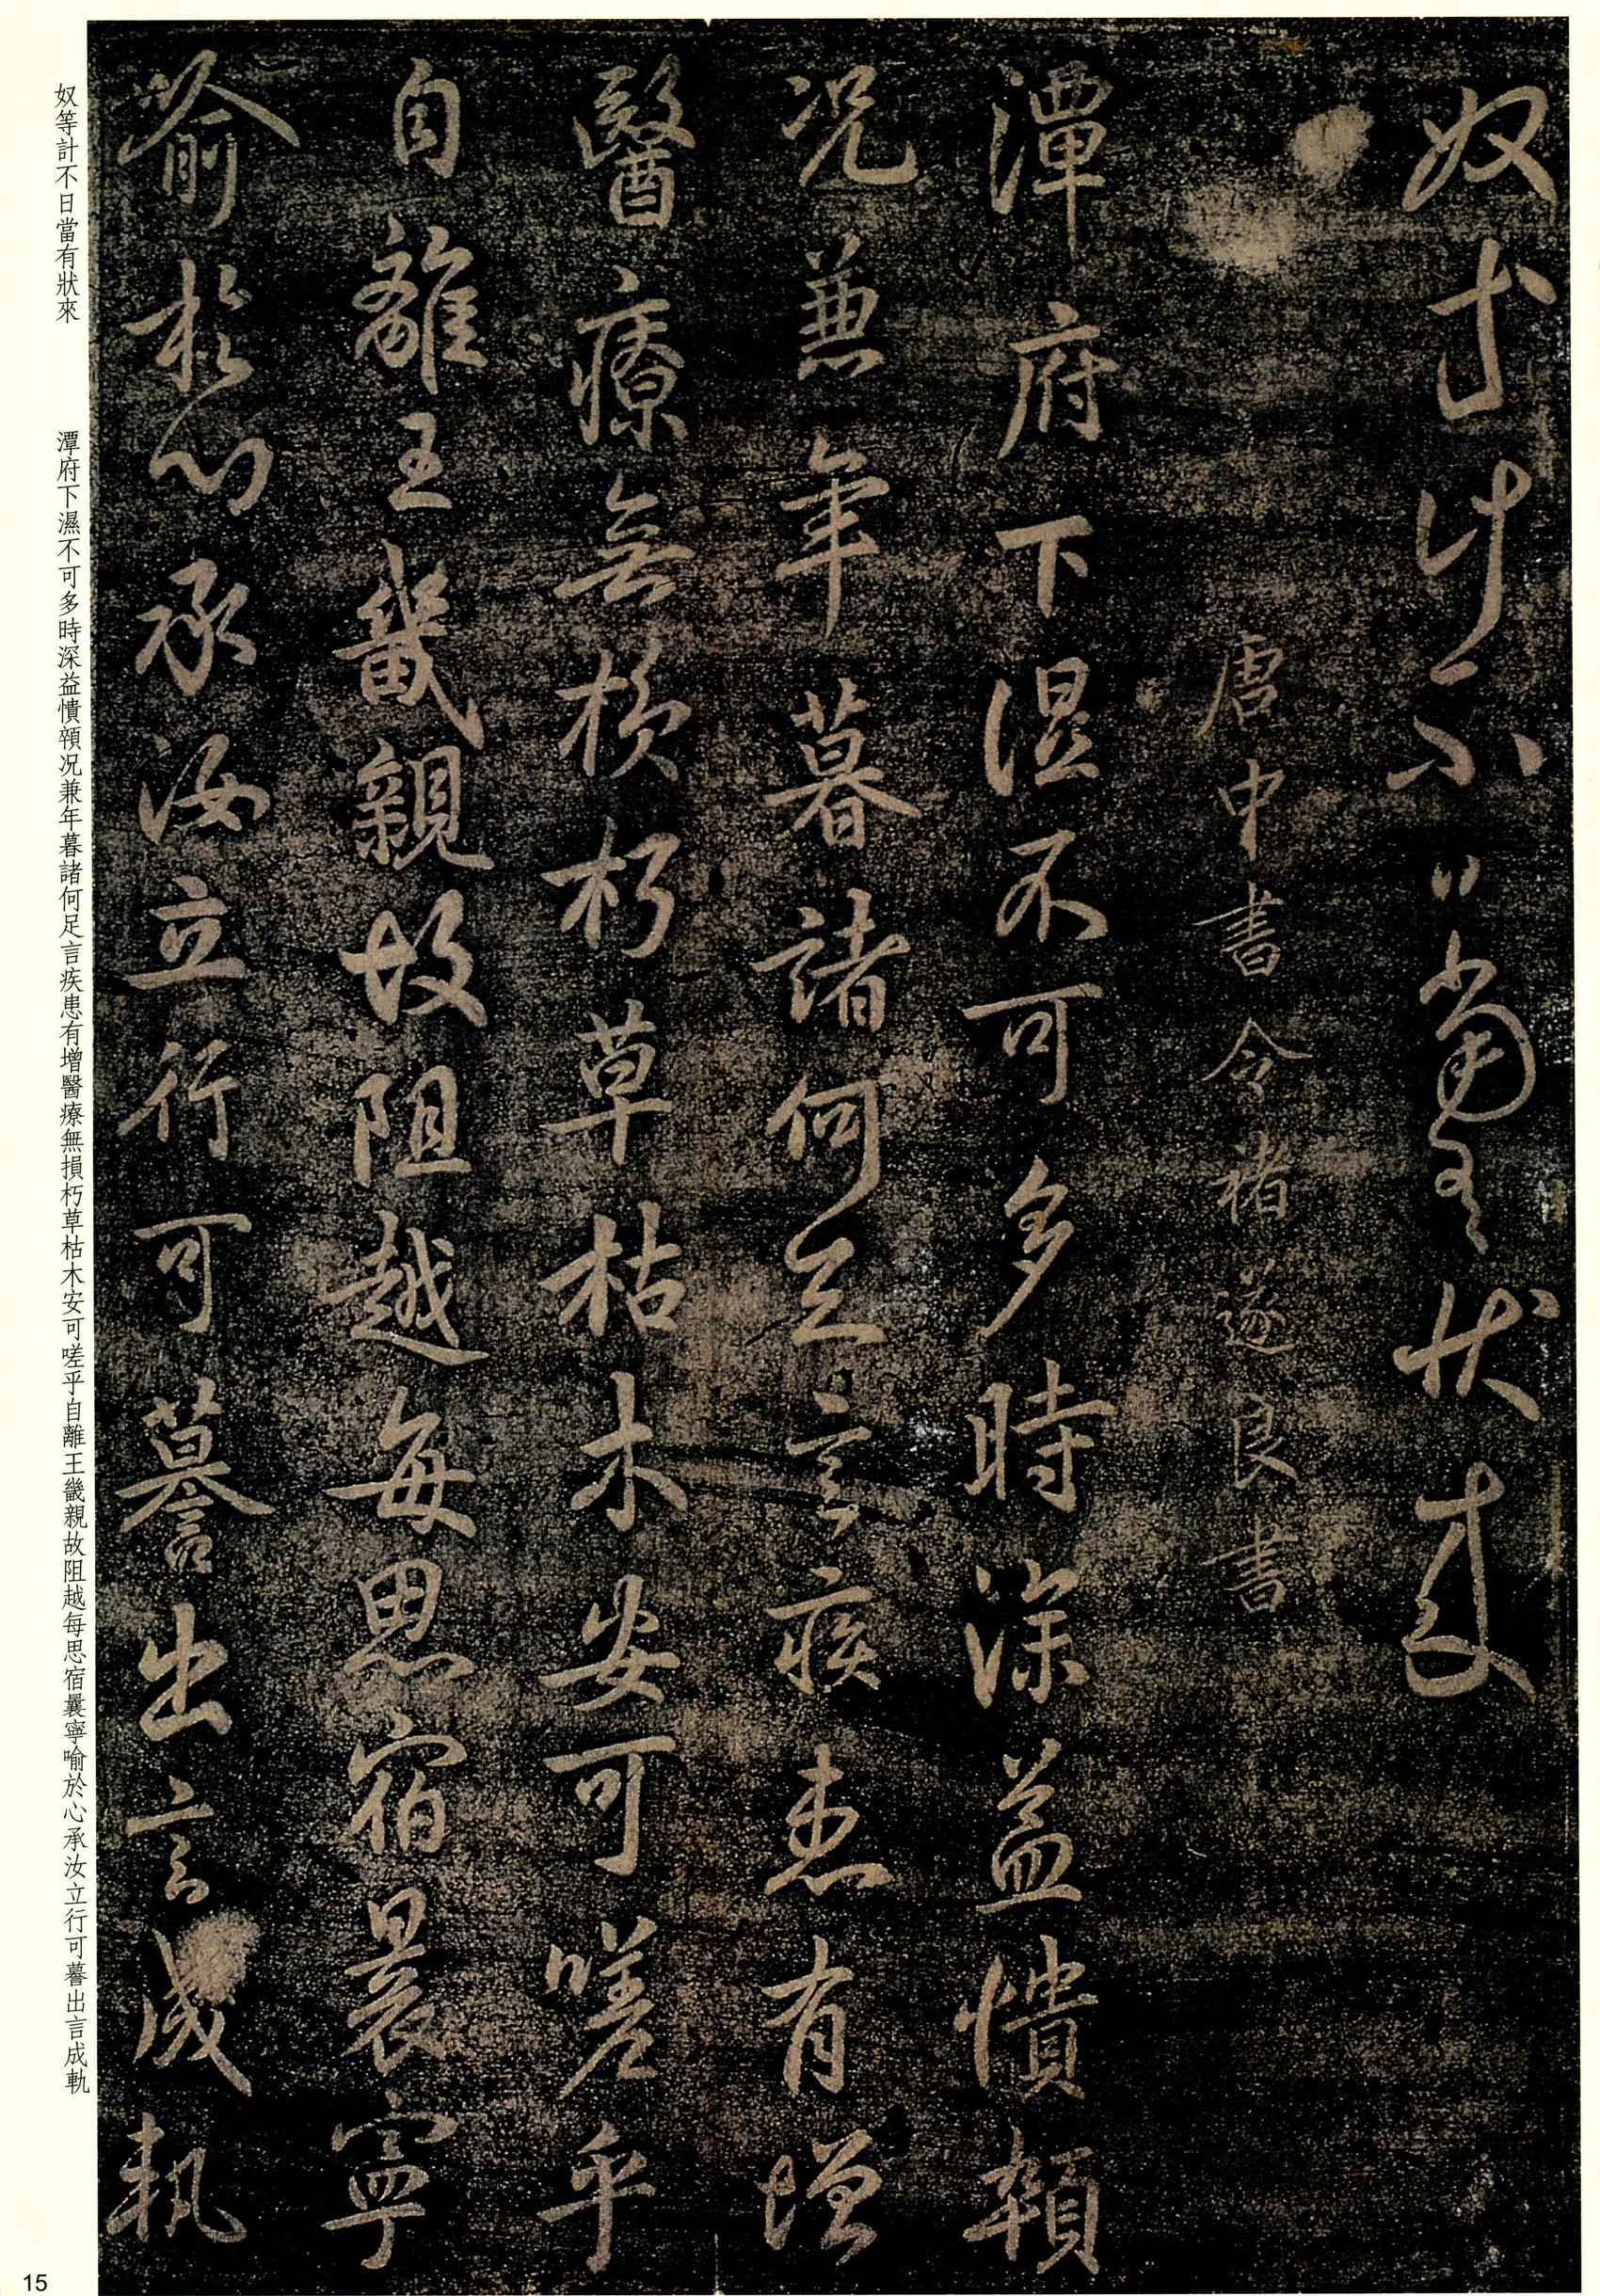 奴等計不日當有狀來
唐中書令褚遂良書
潭府下濕不可多時深益憒顇
况兼年暮諸何足言疾患有增
醫療無損朽草枯木安可嗟乎
自離王畿親故阻越每思宿曩寧
喻於心承汝立行可謩出言成軌
奴等計不日當有狀來
潭府下濕不可多時深益憒顇况兼年暮諸何足言疾患有增醫療無損朽草枯木安可嗟乎自離王畿親故阻越每思宿曩寧喻於心承汝立行可謩出言成軌
15